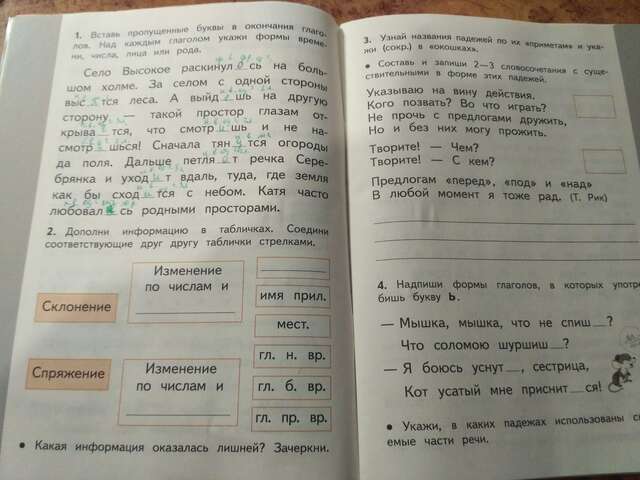 1. Вставь пропущенные буквы в окончания глаго-
лов. Над каждым глаголом укажи формы време-
ни, числа, лица или рода.
Село Высокое раскинулось на боль-
шом холме. За селом с одной стороны
выс тся леса. А выйд шь на другую
сторону — такой простор глазам от-
крыва тся, что смотр шь и не на-
смотр шься! Сначала тян тся огороды
да поля. Дальше петля т речка Сере-
брянка и уход т вдаль, туда, где земля
как бы сход тся с небом. Катя часто
любовал сь родными просторами.
2. Дополни информацию в табличках. Соедини
соответствующие друг другу таблички стрелками.
Склонение
Изменение
по числам и
имя прил.
мест.
гл. н. вр.
Спряжение
Изменение
по числам и
гл. б. вр.
гл. пр. вр.
• Какая информация оказалась лишней? Зачеркни.
3. Узнай названия падежей по их «приметам» и ука-
жи (сокр.) в «окошках».
• Составь и запиши 2—3 словосочетания с суще-
ствительными в форме этих падежей.
Указываю на вину действия.
Кого позвать? Во что играть?
Не прочь с предлогами дружить,
Но и без них могу прожить.
Творите! — Чем?
Творите! — С кем?
Предлогам «перед», «под» и «над»
В любой момент я тоже рад. (Т. Рик)
4. Надпиши формы глаголов, в которых употре
бишь букву ь.
— Мышка, мышка, что не спиш __?
Что соломою шуршиш __?
— Я боюсь уснут __, сестрица,
Кот усатый мне приснит __ся!
• Укажи, в каких падежах использованы с
емые части речи.